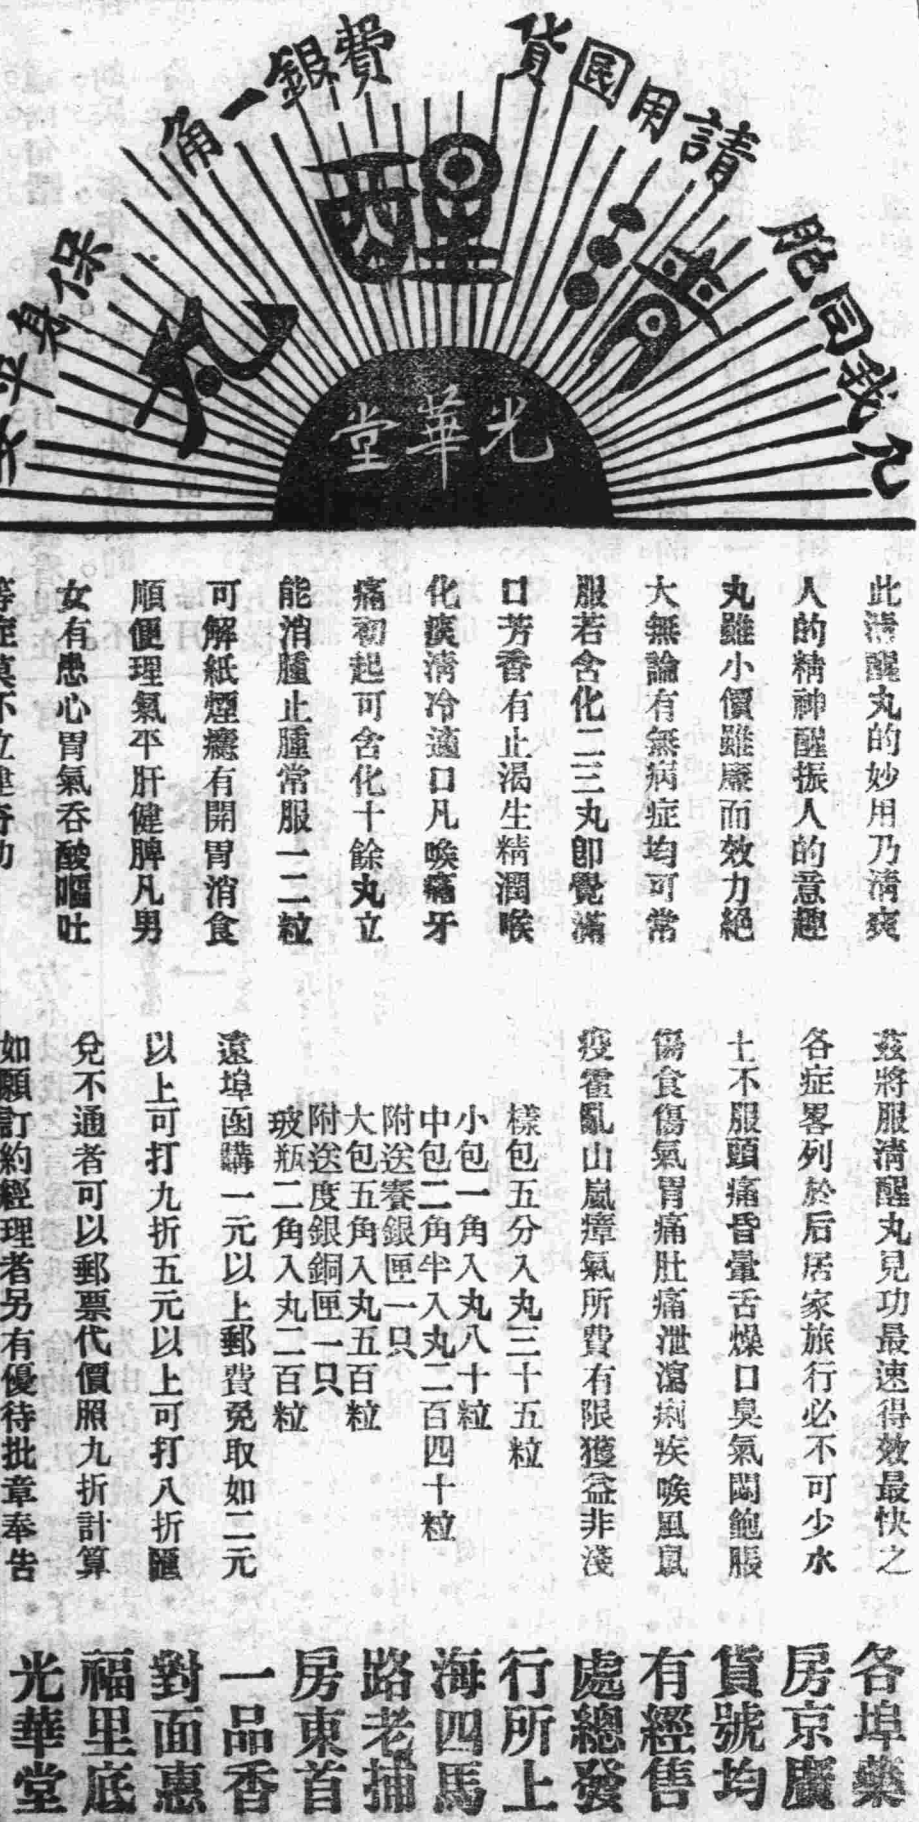 凡我同胞
請用國貨
費銀一角
保身平安
清醒丸
光華堂
此清醒丸的妙用乃清爽
人的精神醒振人的意趣
丸雖小價雖廉而效力絕
大無論有無病症均可常
服若含化二三丸卽覺滿
口芳香有止渴生精潤喉
化痰清冷適口凡喉痛牙
痛初起可含化十餘丸立
能消腫止腫常服一二粒
可解紙煙癮有開胃消食
順便理氣平肝健脾凡男
女有患心胃氣吞酸嘔吐
等症莫不立建奇功
茲將服清醒丸見功最速得效最快之
各症畧列於后居家旅行必不可少水
土不服頭痛昏暈舌燥口臭氣悶飽脹
傷食傷氣胃痛肚痛泄瀉痢疾喉風鼠
疫霍亂山嵐瘴氣所費有限獲益非淺
樣包五分入丸三十五粒
小包一角入丸八十粒
中包二角半入丸二百四十粒
附送賽銀匣一只
大包五角入丸五百粒
附送度銀銅匣一只
玻瓶二角入丸二百粒
遠埠函購一元以上郵費免取如二元
以上可打九折五元以上可打八折匯
兌不通者可以郵票代價照九折計算
如願訂約經理者另有優待批章奉告
各埠藥
房京廣
貨號均
有經售
處總發
行所上
海四馬
路老捕
房東首
一品香
對面惠
福里底
光華堂